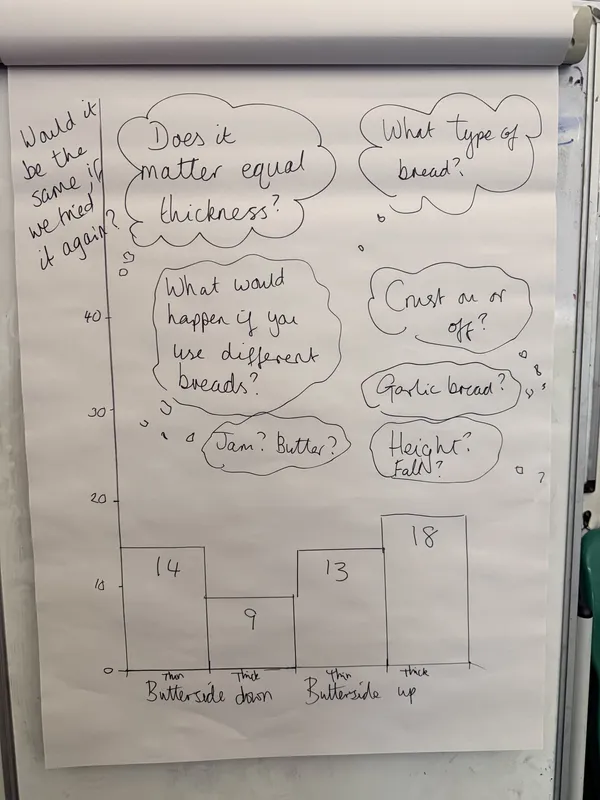 Would it
be the
same if
we tried
it again?
Does it
matter equal
thickness?
What type of
bread?
What would
happen if you
use different
breads?
Crust on or
off?
Garlic bread?
Jam? Butter?
Height?
Fall?
?
40
30
20
10
0
14
9
13
18
Thin
Thick
Thin
Thick
Butterside down
Butterside up